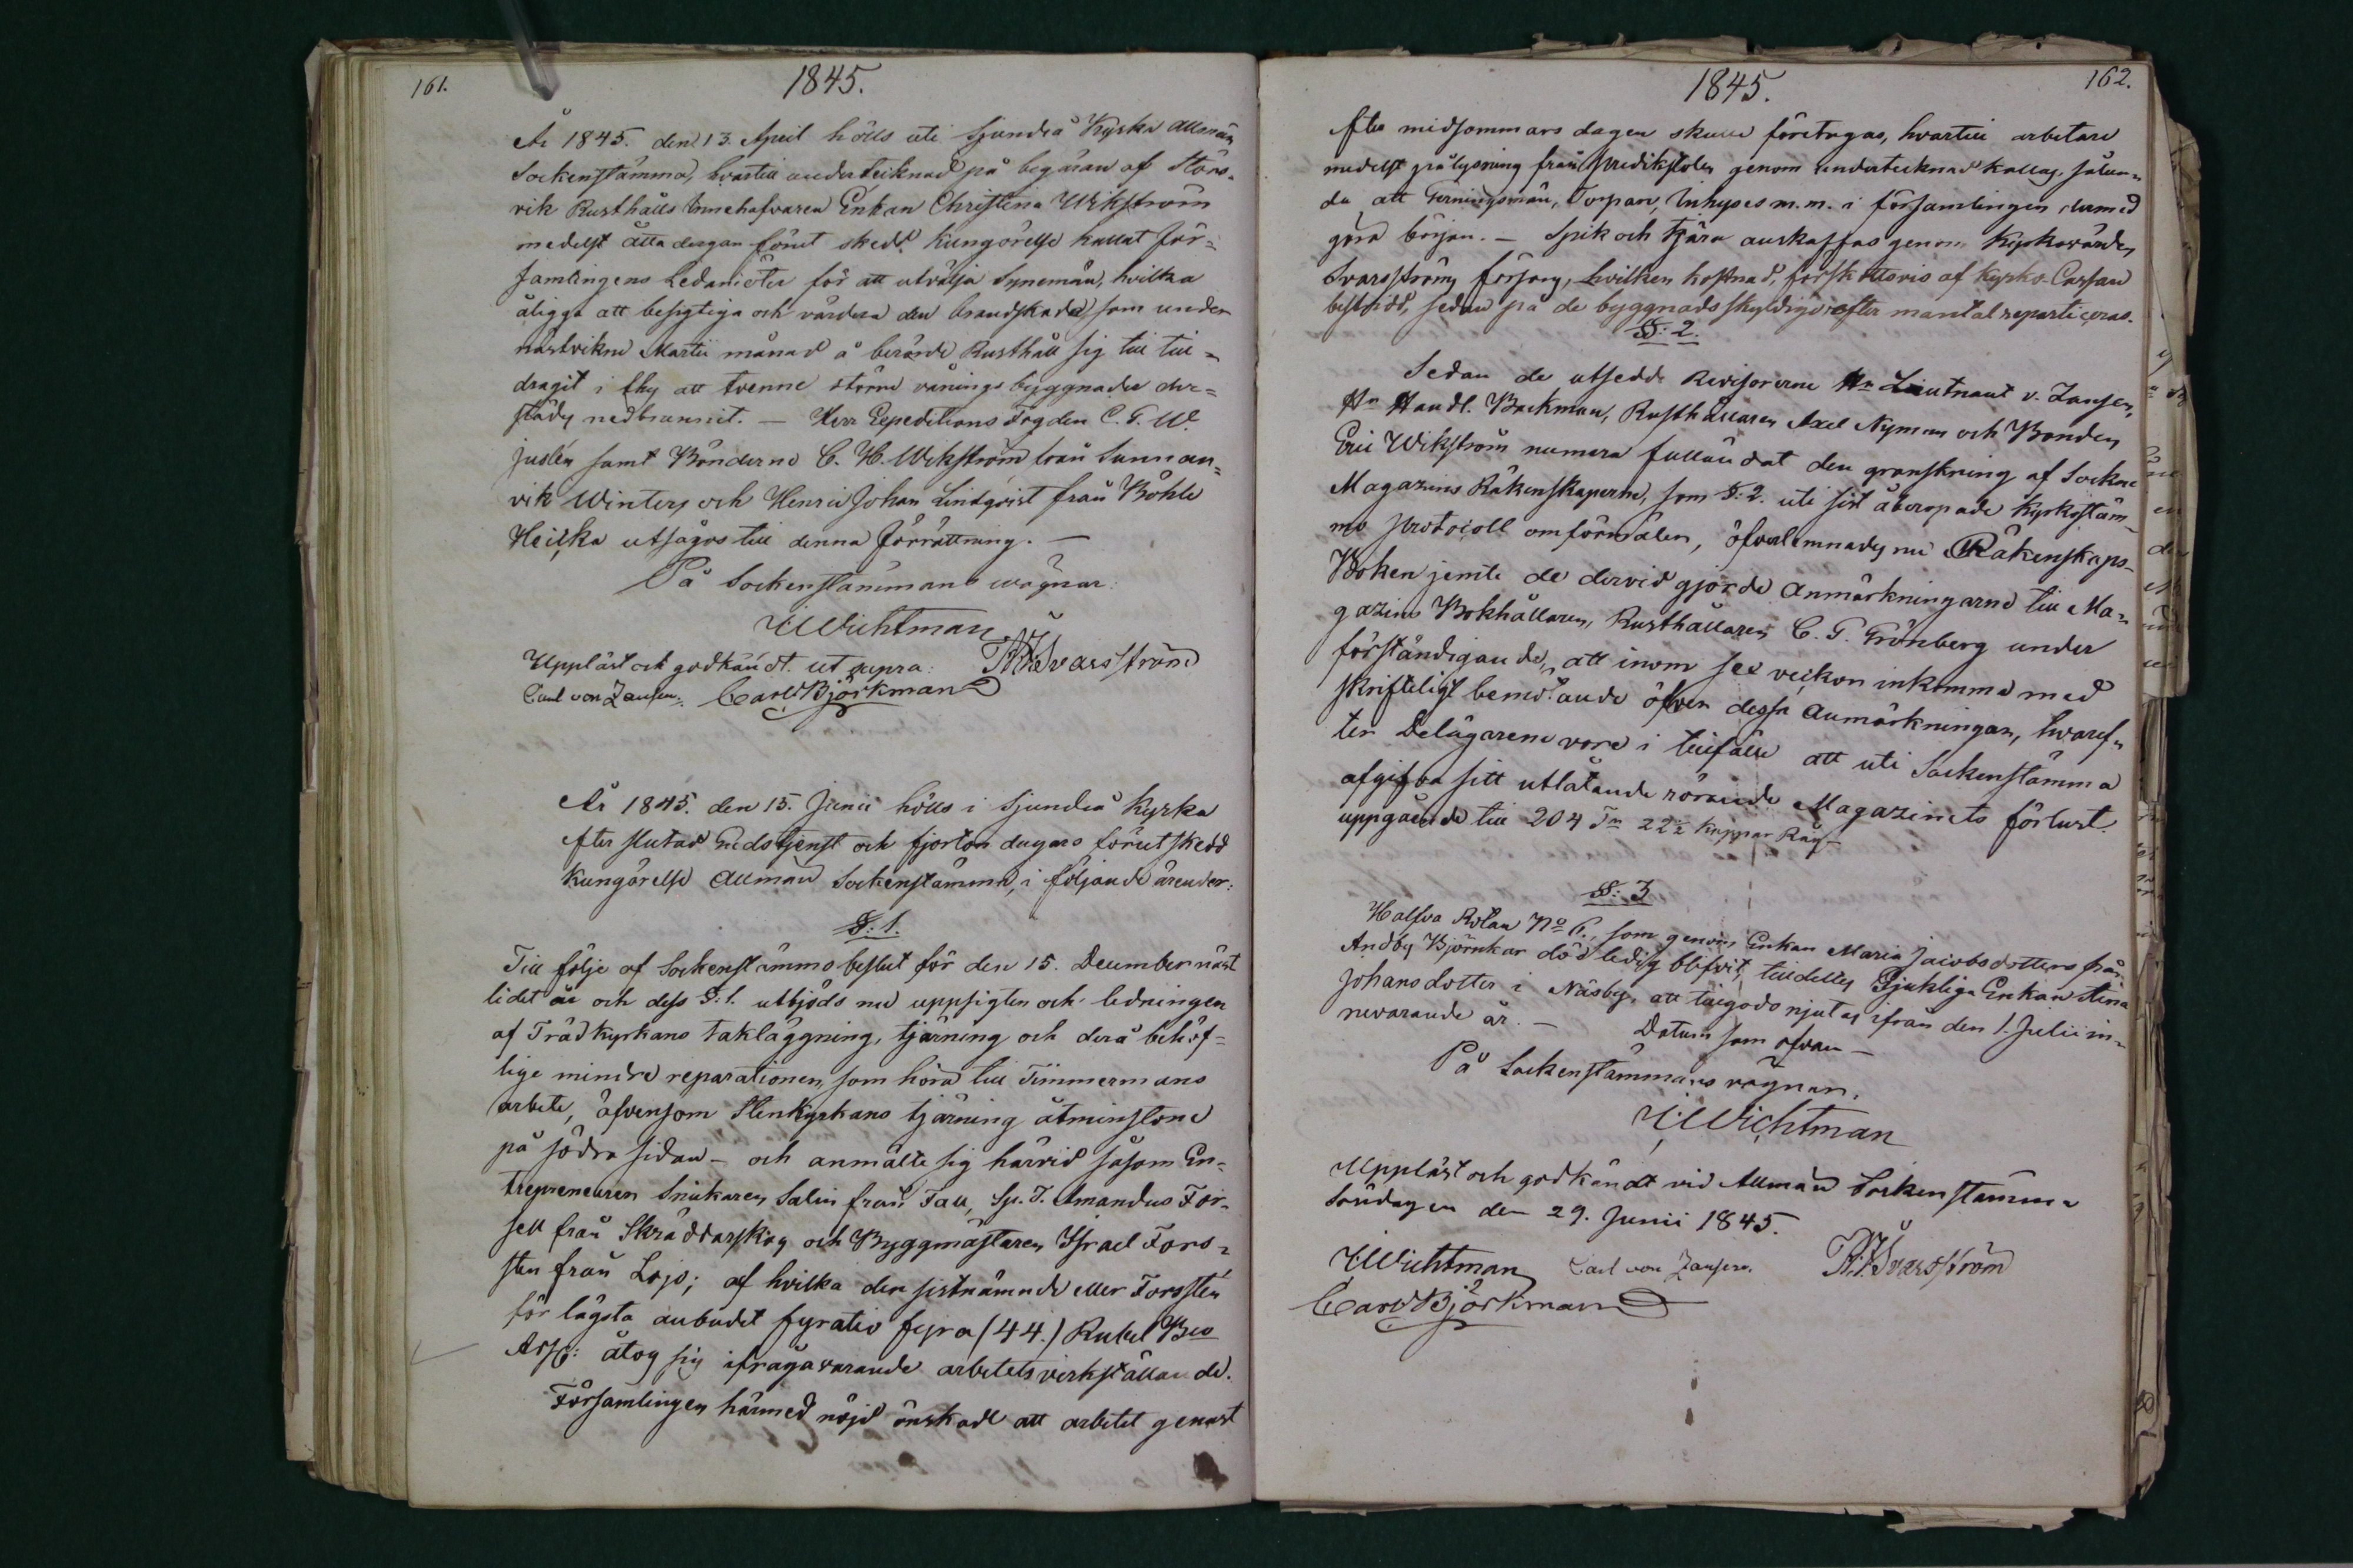 161.
1845.
År 1845. den 13. April hölls uti Sjundeå Kyrka Allmän
Sockenstämma, hvartill undertecknad på begäran af Störs-
vik Rusthålls Innehafvaren Enkan Christina Wikström
medelst åtta dagar förut skedd kungörelse kallat För=
samlingens Ledamöter för att utvälja Synemän, hvilka
åligga att besigtiga och värdera den brandskada som under
nästvikne Martii månad å berörde Rusthåll sig till=
dragit i thy att tvenne större våningsbyggnader der=
städs nedbrunnit. — Herr Expeditions Fogden C. G. W.
juslén samt Bönderne C. H. Wikström från Sunnan=
vik Winters och Henric Johan Lindqvist från Böhle
Heikka utsågos till denna förrättning. —
På Sockenstämmans wägnar:
Wichtman
Uppläst och godkändt. ut supra: Svarsström
Carl von Zansen. Carl Björkman
År 1845. den 15. Junii hölls i Sjundeå Kyrka
efter slutad Gudstjenst och fjorton dagars förut skedd
kungörelse Allmän Sockenstämma, i följande ärender:
§: 1.
Till följe af Sockenstämmobeslut för den 15. December näst
lidet år och dess §: 1. utbjöds nu uppsigten och ledningen
af Trädkyrkans takläggning, tjärning och derå behöf=
lige mindre reparationer, som höra till Timmermans
arbete, äfvensom Stenkyrkans tjärning åtminstone
på södra sidan — och anmälte sig härvid såsom En=
trepreneurer Snickaren Salin från Tall, Sp. T. Amandus For-
sell från Skräddarskog och Byggmästaren Israel Fors=
stén från Lojo; af hvilka den sistnämnde eller Forsstén
för lägsta anbudet fyratio fyra (44.) Rubel Bco
Ass: åtog sig ifrågavarande arbetets verkställande.
Församlingen härmed nöjd önskade att arbetet genast
162.
1845.
efter midsommars dagen skulle företagas, hvartill arbetare
medelst pålysning från Predikstolen genom undertecknad kallas, sålun=
da att Gerningsmän, Torpare, Inhyses m.m. i församlingen dermed
göra början. — Spik och tjära anskaffas genom Kyrkovärden
Svarsströms försorg, hvilken kostnad, förskottsvis af Kyrko-Cassan
bestridd, sedan på de byggnadsskyldige efter mantal reparticeras.
§: 2.
Sedan de utsedde Revisorerne Hr Lieutnant v. Zansen,
Hr Handl. Backman, Rusthållaren Axel Nyman och Bonden
Eric Wikström numera fulländat den granskning af Sockne
Magazins Räkenskaperne, som §: 2. uti sist åberopade Kyrkostäm-
mo Protocoll omförmälen, öfverlemnades nu Räkenskaps-
Boken jemte de dervid gjorde Anmärkningarne till Ma=
gazins Bokhållaren, Rusthållaren C. G. Grönberg under
förständigande, att inom sex veckor inkomma med
skrifteligt bemötande öfver dessa Anmärkningar, hvaref=
ter Delägarene vore i tillfälle att uti Sockenstämma
afgifva sitt utlåtande rörande Magazinets förlust.
uppgående till 204 Tn 22½ kappar Råg —
§: 3
Halfva Rotan No 6., som genom Enkan Maria Jacobsdotters från
Andby Björnkar död ledig blifvit, tilldeltes Sjukliga Enkan Stina
Johansdotter i Näsby, att tillgodo njutas ifrån den 1. Julii in=
nevarande år. — Datum som ofvan —
På Sockenstämmans vägnar.
Wichtman
Uppläst och godkändt vid Allmän Sockenstämma
Söndagen den 29. Junii 1845.
Wichtman Carl von Zansen. Svarsström
Carl Björkman